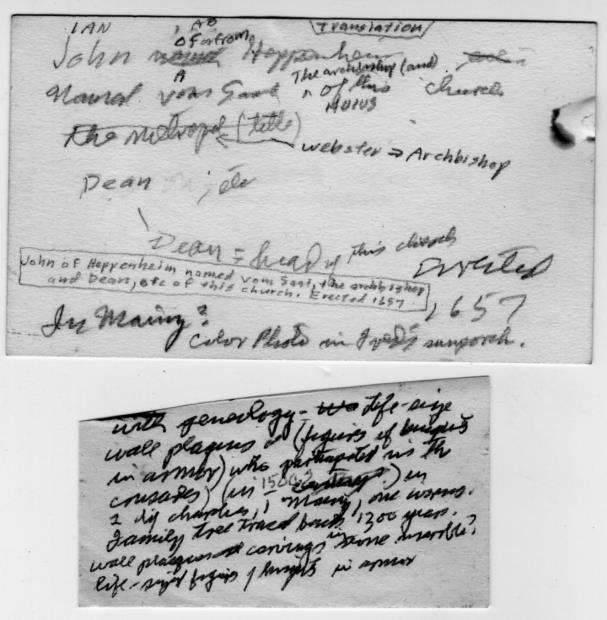 IAN , AB Translation
of or from
John Heppenheim
A The archbishop (and
Named vom Saal ^ of this church
HUIUS
the metropol (title)
webster → Archbishop
Dean etc
Dean = head of this church
Erected
John of Heppenheim named vom Saal, the archbishop
and Dean, etc of this church. Erected 1657.
, 1657
In Mainz?
color Photo in Fred's sunporch.
with geneology - life-size
wall plaques (figures of knights
in armor) who participated in the
crusades) (in 1500s ) in
2 dif churches, 1 Mainz, one worms.
Family tree traced back 1300 years.
wall plaques carvings in some marble?
life-sized figures of knights in armor